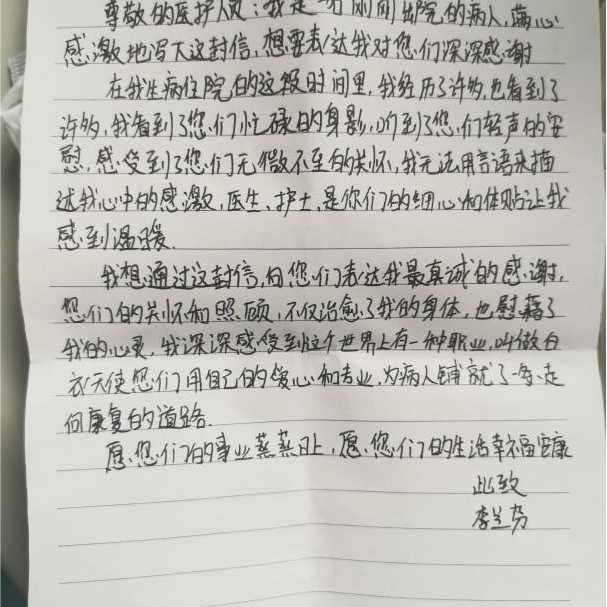 尊敬的医护人员：我是一名刚刚出院的病人，满心
感激地写下这封信，想要表达我对您们深深感谢
在我生病住院的这段时间里，我经历了许多，也看到了
许多，我看到了您们忙碌的身影，听到了您们轻声的安
慰，感受到了您们无微不至的关怀，我无法用言语来描
述我心中的感激，医生、护士，是你们的细心和体贴让我
感到温暖.
我想通过这封信，向您们表达我最真诚的感谢，
您们的关怀和照顾，不仅治愈了我的身体，也慰藉了
我的心灵，我深深感受到这个世界上有一种职业，叫做白
衣天使您们用自己的爱心和专业，为病人铺就了一条走
向康复的道路.
愿您们的事业蒸蒸日上，愿您们的生活幸福安康
此致
李兰